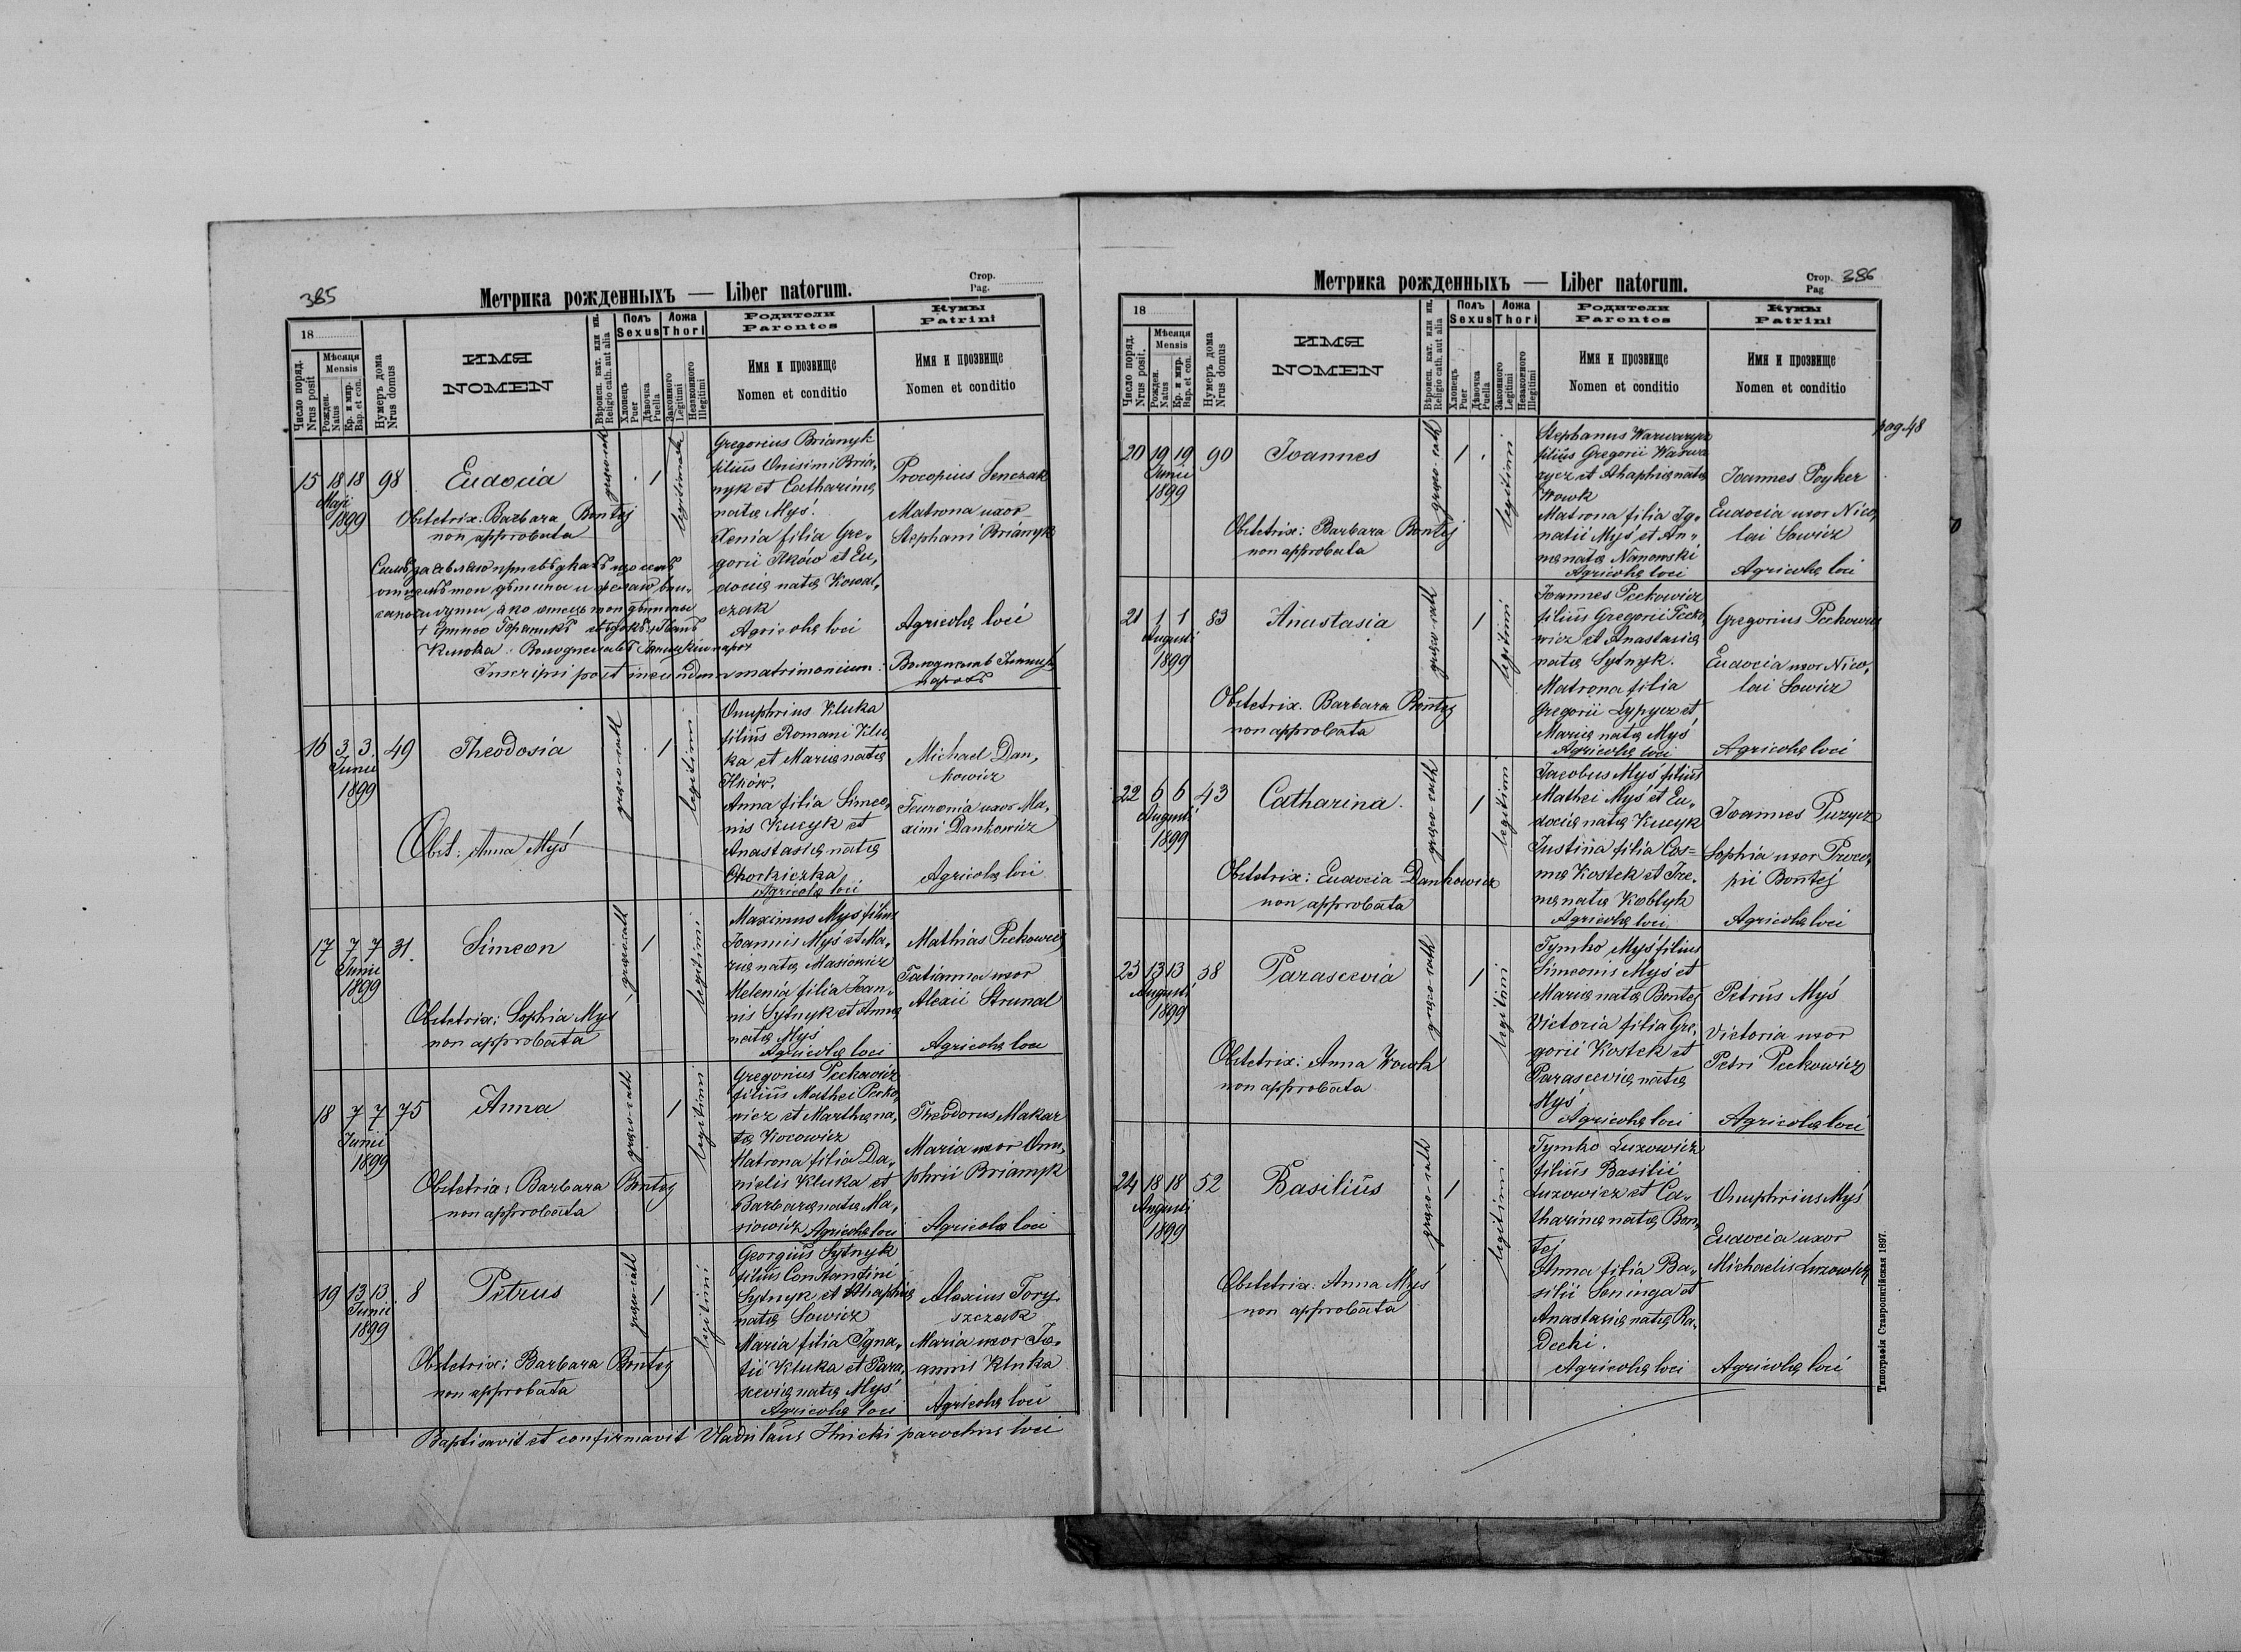 385
Метрика рожденныхъ — Liber natorum.
Стор.
Pag.
18
Число поряд.
Nrus posit
Мѣсяця
Mensis
Рожден.
Natus
Кр. и мир.
Bap. et con.
Нумеръ дома
Nrus domus
ИМЯ
NOMEN
Вѣроисп. кат. или ин.
Religio cath. aut alia
Полъ
Sexus
Хлопець
Puer
Дѣвочка
Puella
Ложа
Thori
Законного
Legitimi
Незаконного
Illegitimi
Родители
Parentes
Имя и прозвище
Nomen et conditio
Кумы
Patrini
Имя и прозвище
Nomen et conditio
15 18 18 98 Eudocia
Maji
1899
Obstetrix: Barbara Bontej
non approbata
graeco-cath
1
legitimata
Gregorius Brianyk
filius Onisimi Bria„
nyk et Catharinę
natę Myś.
Xenia filia Gre„
gorii Jłków et Eu„
docię natę Kowal„
czak
Agricolę loci
Procopius Senczak
Matrona uxor
Stephani Brianyk
Agricolę loci
Inscripsi post ineundum matrimonium:
16 3 3 49 Theodosia
Junii
1899
Obst: Anna Myś
graeco-cath
1
legitimi
Onuphrius Kluka
filius Romani Klu„
ka et Marię natę
Jłków.
Anna filia Simeo„
nis Kucyk et
Anastasię natę
Chorkiczka
Agricolę loci
Michael Dan„
kowicz
Feuronia uxor Ma„
ximi Dankowicz
Agricolę loci
17 7 7 31. Simeon
Junii
1899
Obstetrix: Sophia Myś
non approbata
graeco-cath
1
legitimi
Maximus Myś filius
Joannis Myś et Ma„
rię natę Masiowicz
Melenia filia Joan„
nis Sytnyk et Annę
natę Myś
Agricolę loci
Mathias Peckowicz
Tatianna uxor
Alexii Strunal
Agricolę loci
18 7 7 75 Anna
Junii
1899
Obstetrix: Barbara Bontej
non approbata
graeco-cath
1
legitimi
Gregorius Peckowicz
filius Mathei Pecko„
wicz et Marthę na„
tę Kocowicz
Matrona filia Da„
nielis Kluka et
Barbarę natę Ma„
siowicz Agricolę loci
Theodorus Makar
Maria uxor Onu„
phrii Brianyk
Agricolę loci
19 13 13 8 Petrus
Junii
1899
Obstetrix: Barbara Bontej
non approbata
graeco-cath
1
legitimi
Georgius Sytnyk
filius Constantini
Sytnyk et Ahaphię
natę Sowicz
Maria filia Igna„
tii Kluka et Para„
scevię natę Myś
Agricolę loci
Alexius Tory„
szczak
Maria uxor Jo„
annis Kluka
Agricolę loci
Baptisavit et confirmavit Vladislaus Ilnicki parochus loci
Метрика рожденныхъ — Liber natorum.
Стор. 386
Pag
18
Число поряд.
Nrus posit.
Мѣсяця
Mensis
Рожден.
Natus
Кр. и мир.
Bap. et con.
Нумеръ дома
Nrus domus
ИМЯ
NOMEN
Вѣроисп. кат. или ин.
Religio cath. aut alia
Полъ
Sexus
Хлопець
Puer
Дѣвочка
Puella
Ложа
Thori
Законного
Legitimi
Незаконного
Illegitimi
Родители
Parentes
Имя и прозвище
Nomen et conditio
Кумы
Patrini
Имя и прозвище
Nomen et conditio
pag. 48
20 19 19 90 Joannes
Junii
1899
Obstetrix: Barbara Bontej
non approbata
graeco-cath
1
legitimi
Stephanus Warwarycz
filius Gregorii Warwa
rycz et Ahaphię natę
Wowk
Matrona filia Ig„
natii Myś et An„
nę natę Nanowski
Agricolę loci
Joannes Poyker
Eudocia uxor Nico„
lai Sowicz
Agricolę loci
21 1 1 83 Anastasia
Augusti
1899
Obstetrix. Barbara Bontej
non approbata
graeco-cath
1
legitimi
Joannes Peckowicz
filius Gregorii Pecko„
wicz et Anastasię
natę Sytnyk.
Matrona filia
Gregorii Lypycz et
Marię natę Myś
Agricolę loci
Gregorius Peckowicz
Eudocia uxor Nico„
lai Sowicz
Agricolę loci
22 6 6 43 Catharina.
Augusti
1899
Obstetrix: Eudocia Dankowicz
non approbata
graeco-cath
1
legitimi
Jacobus Myś filius
Mathei Myś et Eu„
docię natę Kucyk
Justina filia Cos=
mę Kostek et Ire„
nę natę Koblyk
Agricolę loci
Joannes Puzycz
Sophia uxor Proco„
pii Bontej
Agricolę loci
23 13 13 58 Parascevia
Augusti
1899
Obstetrix: Anna Wowk
non approbata
graeco-cath
1
legitimi
Tymko Myś filius
Simeonis Myś et
Marię natę Bontej
Victoria filia Gre„
gorii Kostek et
Parascevię natę
Myś
Agricolę loci
Petrus Myś
Victoria uxor
Petri Peckowicz
Agricolę loci
24 18 18 52 Basilius
Augusti
1899
Obstetrix: Anna Myś
non approbata
graeco-cath
1
legitimi
Tymko Luzowicz
filius Basilii
Luzowicz et Ca„
tharinę natę Bon„
tej
Anna filia Ba„
silii Seninga et
Anastasię natę Ra„
decki.
Agricolę loci
Onuphrius Myś
Eudocia uxor
Michaelis Luzowicz
Agricolę loci
Типографія Ставропигійская 1897.